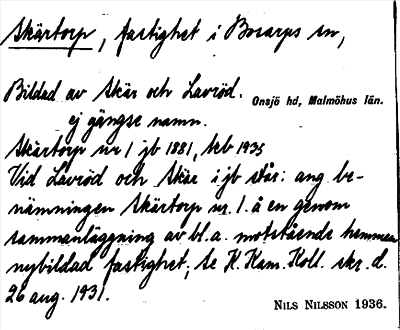 Skärtorp, fastighet i Bosarps sn,
Bildad av Skär och Lavröd.
Onsjö hd, Malmöhus län.
ej gängse namn.
Skärtorp nr 1 jb 1881, krb 1935
Vid Lavröd och Skär i jb står: ang. be-
nämningen Skärtorp nr. 1. å en genom
sammanläggning av bl.a. motstående hemman
nybildad fastighet, se K. Kam. Koll. skr. d.
26 aug. 1931.
NILS NILSSON 1936.